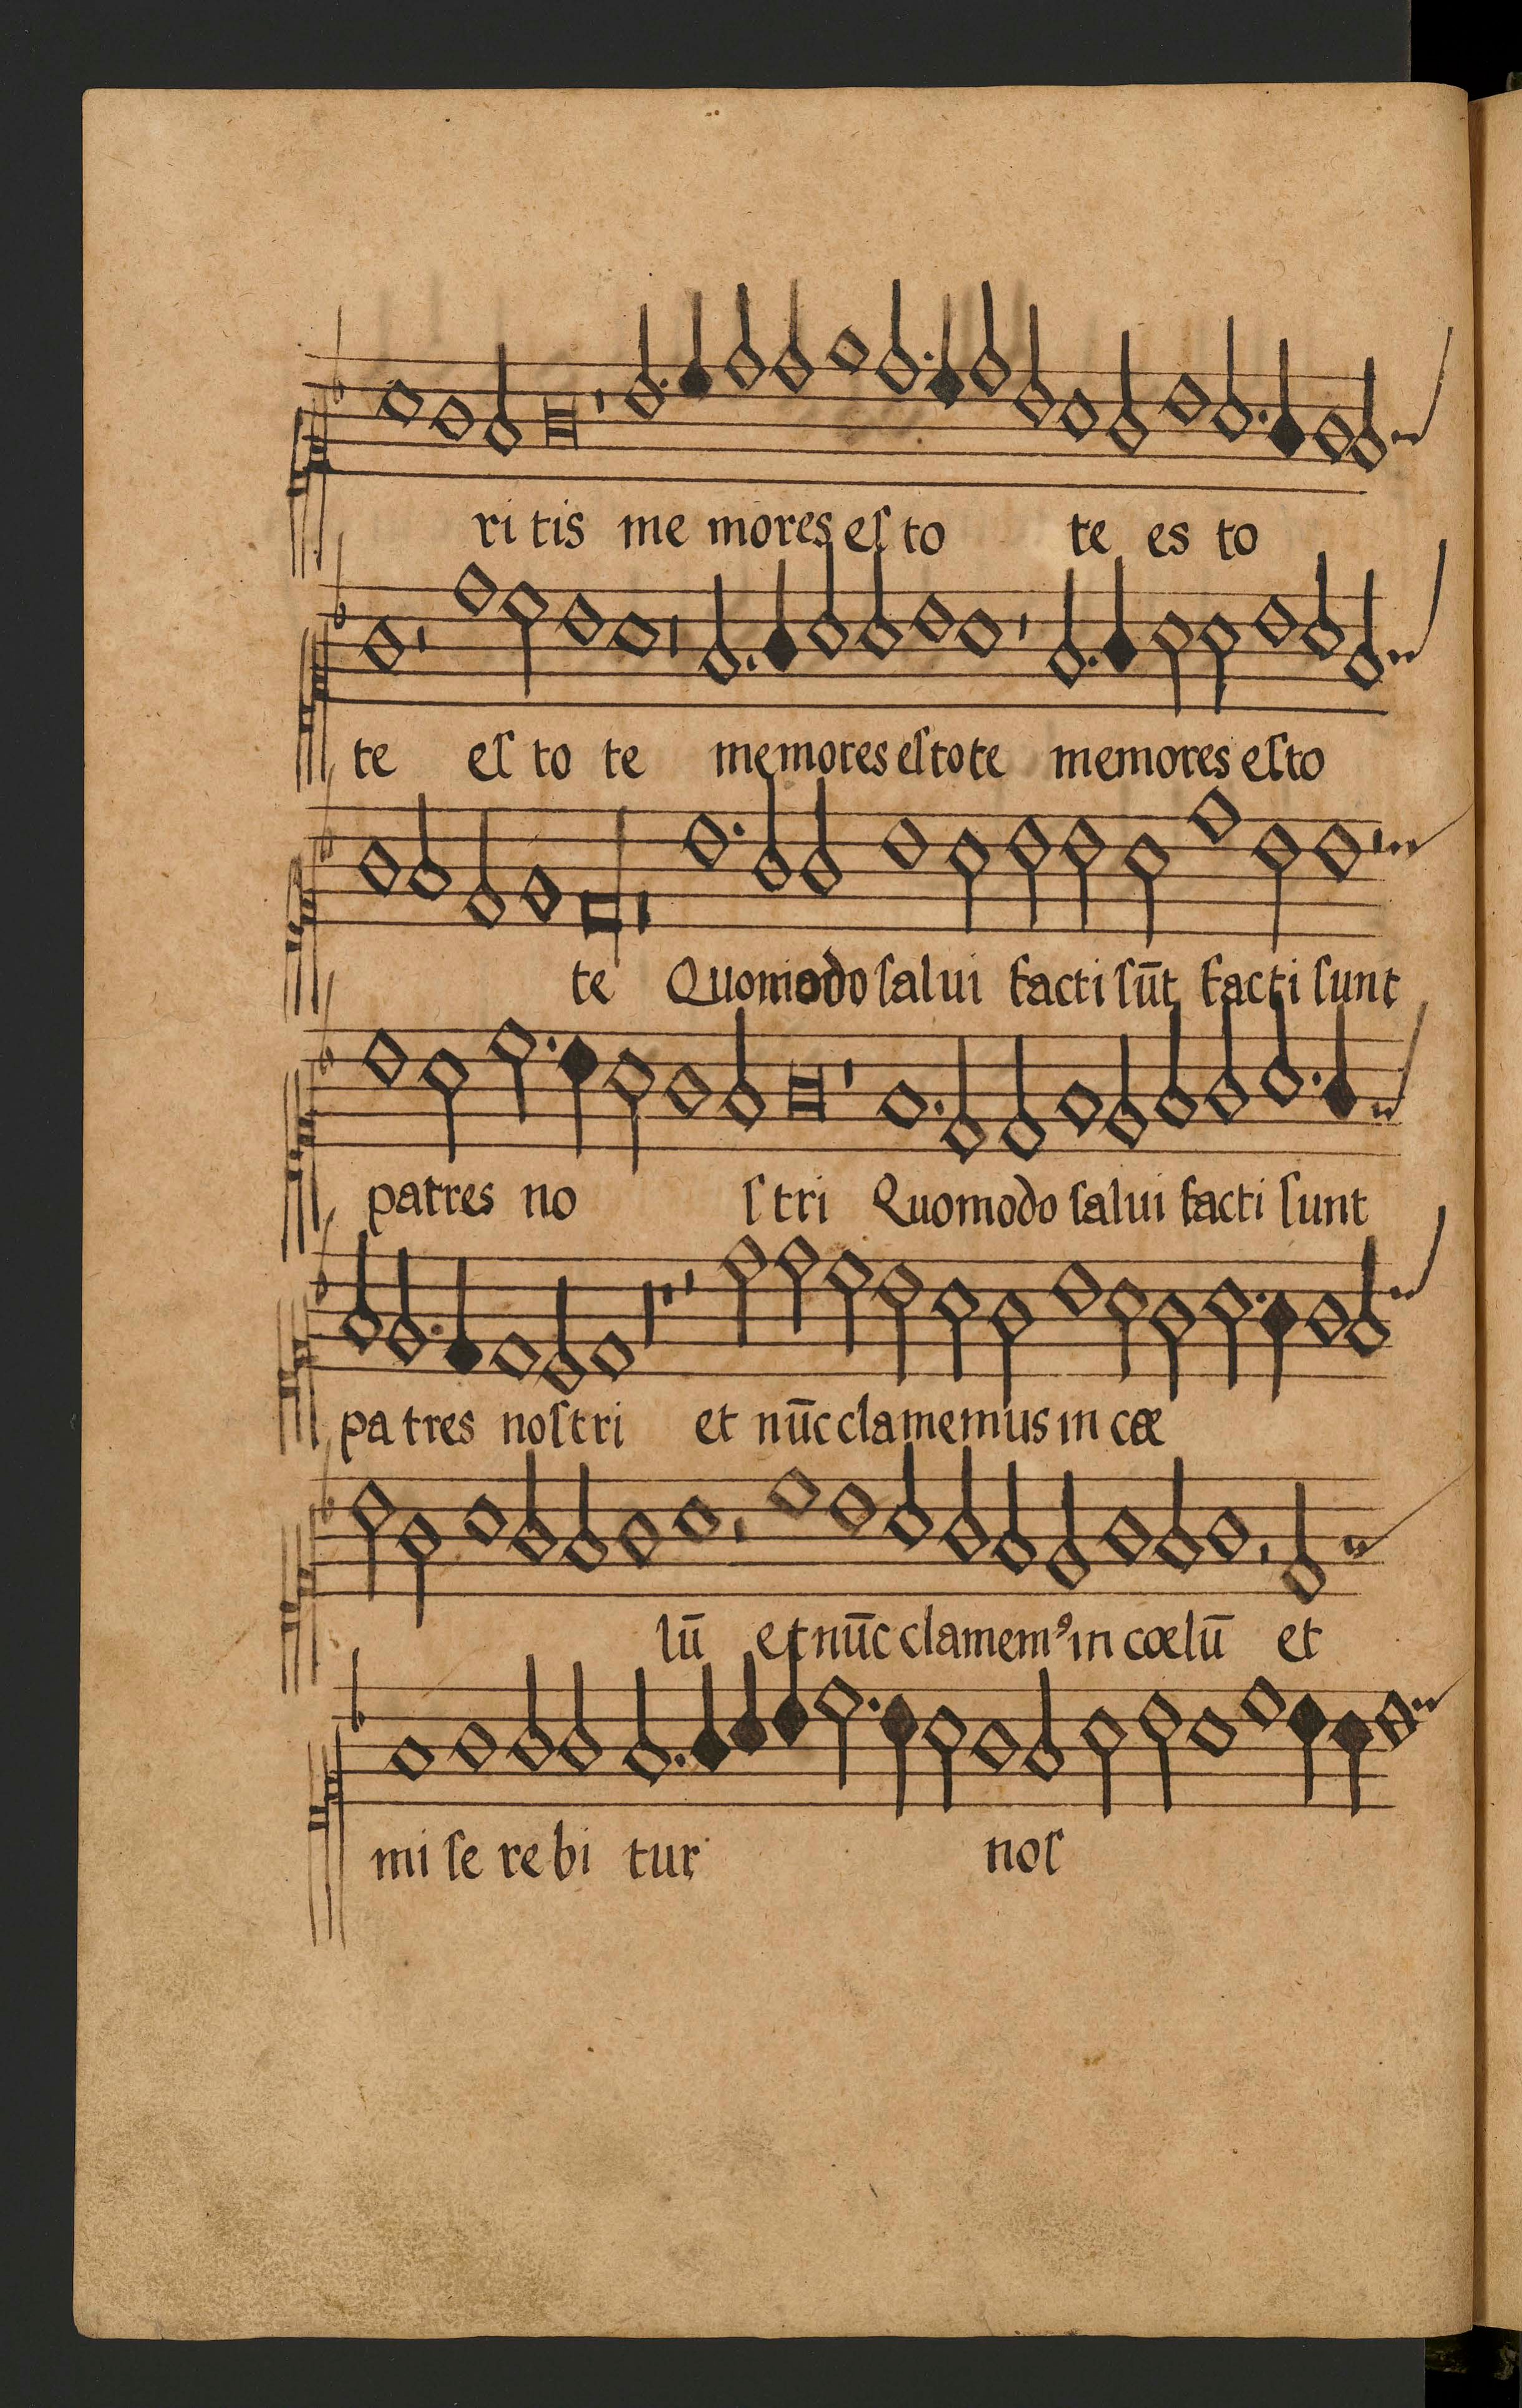 ri tis me mores eſ to te es to
te eſ to te memores eſtote memores eſto
te Quomodo ſalui facti ſūt facti ſunt
patres no ſtri Quomodo ſalui facti ſunt
pa tres noſtri et nūc clamemus in cæ
lū et nūc clamemꝰ in cœlū et
mi ſe re bi tur noſ